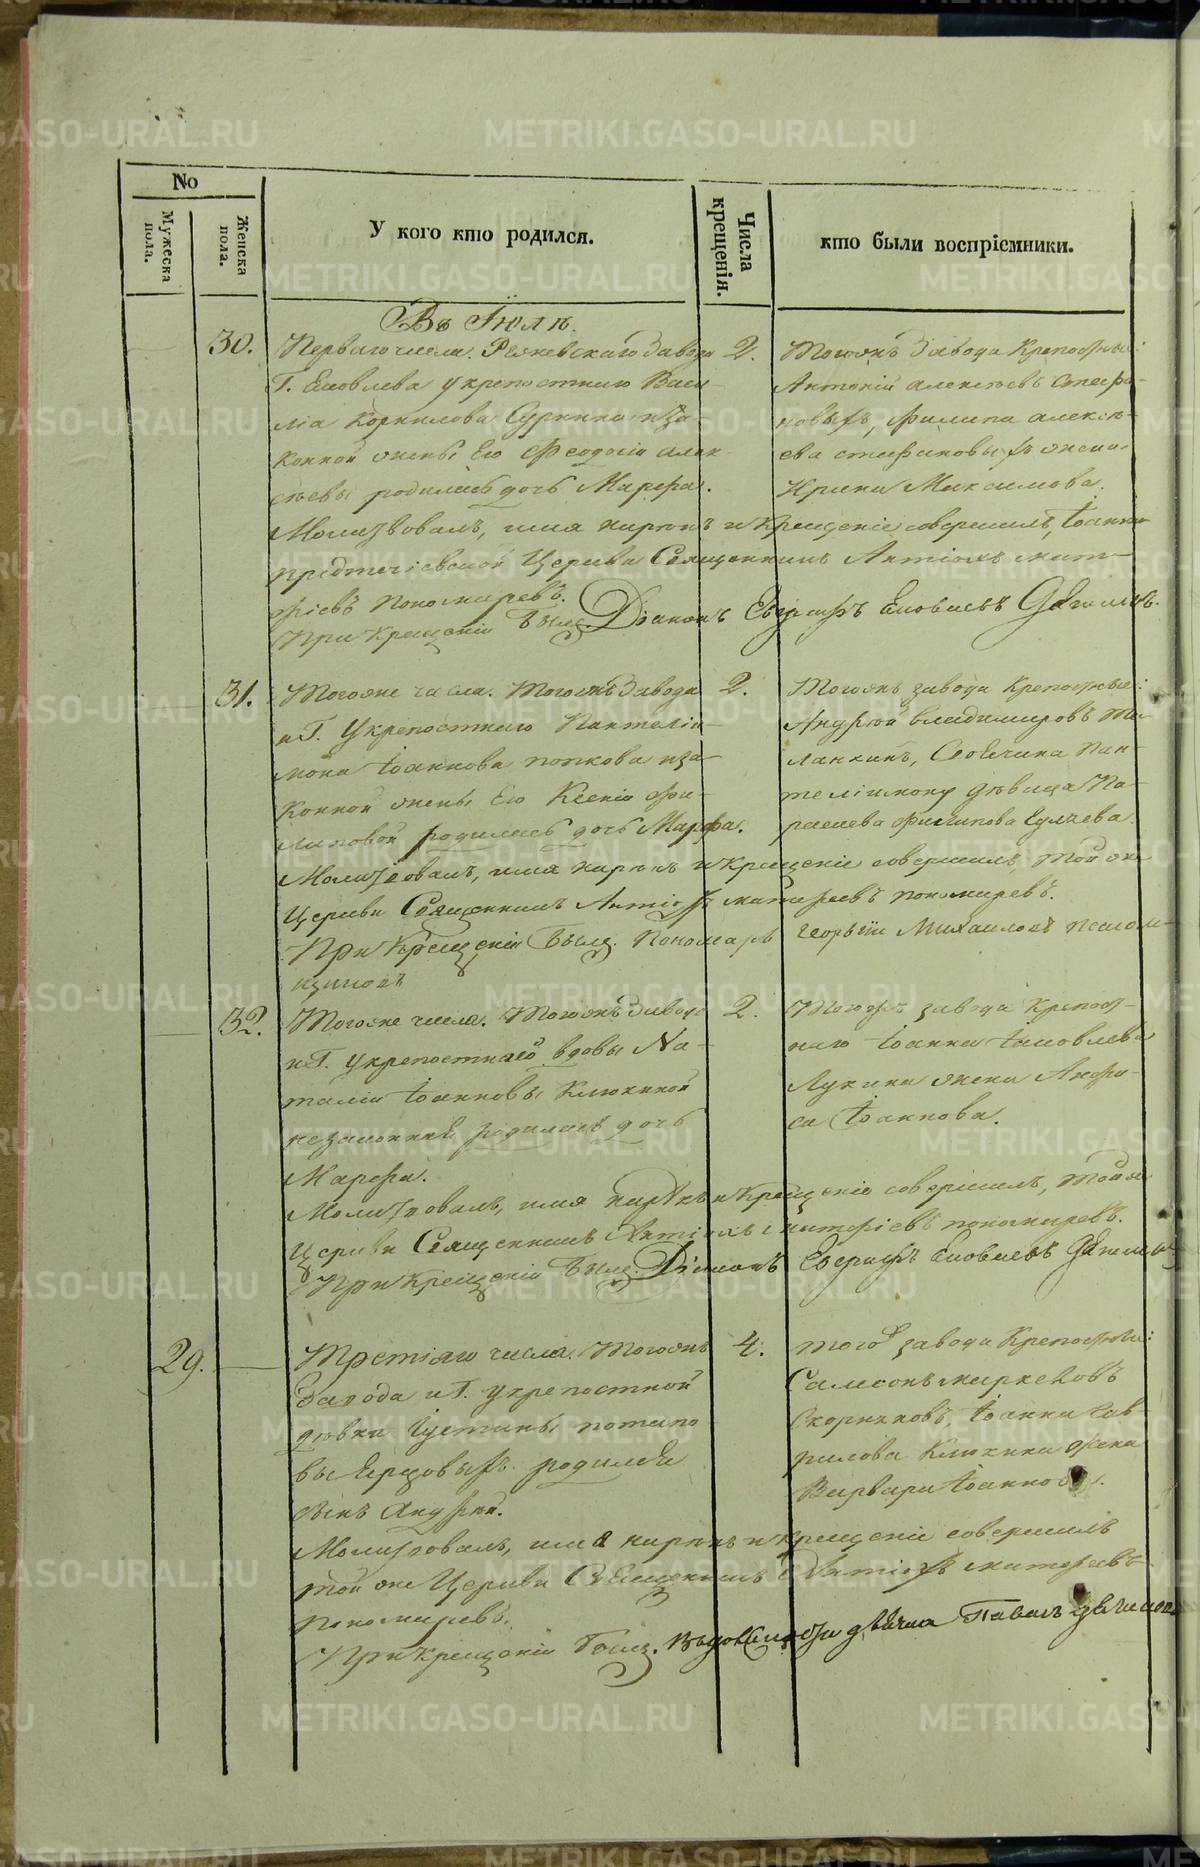 No
Мужеска пола.
Женска пола.
У кого кто родился.
Числа крещенія.
кто были воспріемники.
Въ Іюлѣ.
30.
Перваго числа. Режевскаго Завода
Г. Яковлева у крепостнаго Васи-
лія Корнилова и за-
конной жены Его Феодосіи Алек-
сѣевы родилась дочь Марфа.
2.
Тогожъ Завода Крепостные:
Антоній Алексѣевъ Стефа-
новыхъ, Филипа Алексѣ-
ева Стефановыхъ жена
Ирина Максимова.
Молитвовалъ, имя нарѣкъ и Крещеніе совершилъ, Іоанно
предтечіевской Церкви Священникъ Антіохъ Мат-
фіевъ Пономаревъ.
При Крещеніи былъ Діаконъ Евграфъ Яковлевъ
31.
Тогоже числа. Тогожъ Завода
и Г. Укрепостнаго Пантелій-
мона Іоаннова Попкова и за-
конной жены Его Ксеніи Фи-
липовой родилась дочь Марфа.
2.
Тогожъ завода Крепостные:
Андрей Владимировъ Ма-
ланьинъ, Пан-
телімону дѣвица Па-
раскева Филипова
Молитвовалъ, имя нарѣкъ и крещеніе совершилъ, той же
Церкви Священникъ Антіохъ Матфіевъ Пономаревъ.
При Крещеніи былъ Пономарь Георгій Михаиловъ
32.
Тогоже числа. Тогожъ Завода
и Г. Укрепостнаго вдовы На-
таліи Іоанновы Клюкиной
незаконная родилась дочь
Марфа.
2.
Тогожъ завода Крепост-
наго Іоанна Іаковлева
Лукина жена Анфи-
са Іоаннова.
Молитвовалъ, имя нарѣкъ и Крещеніе совершилъ, тойже
Церкви Священникъ Антіохъ Матфіевъ Пономаревъ.
При Крещеніи былъ Діаконъ Евграфъ Яковлевъ
29.
Третіяго числа. Тогожъ
Завода и Г. укрепостной
дѣвки Іустины Потапо-
вы родился
сынъ Андрей.
4.
того завода Крепостные:
Самсонъ Маркеловъ
Скорняковъ, Іоанна Гав-
рилова Клюкина жена
Варвара Іоаннова.
Молитвовалъ, имя нарѣкъ и крещеніе совершилъ
той же Церкви Священникъ Антіохъ Матфеевъ
Пономаревъ.
При крещеніи былъ Павелъ
METRIKI.GASO-URAL.RU